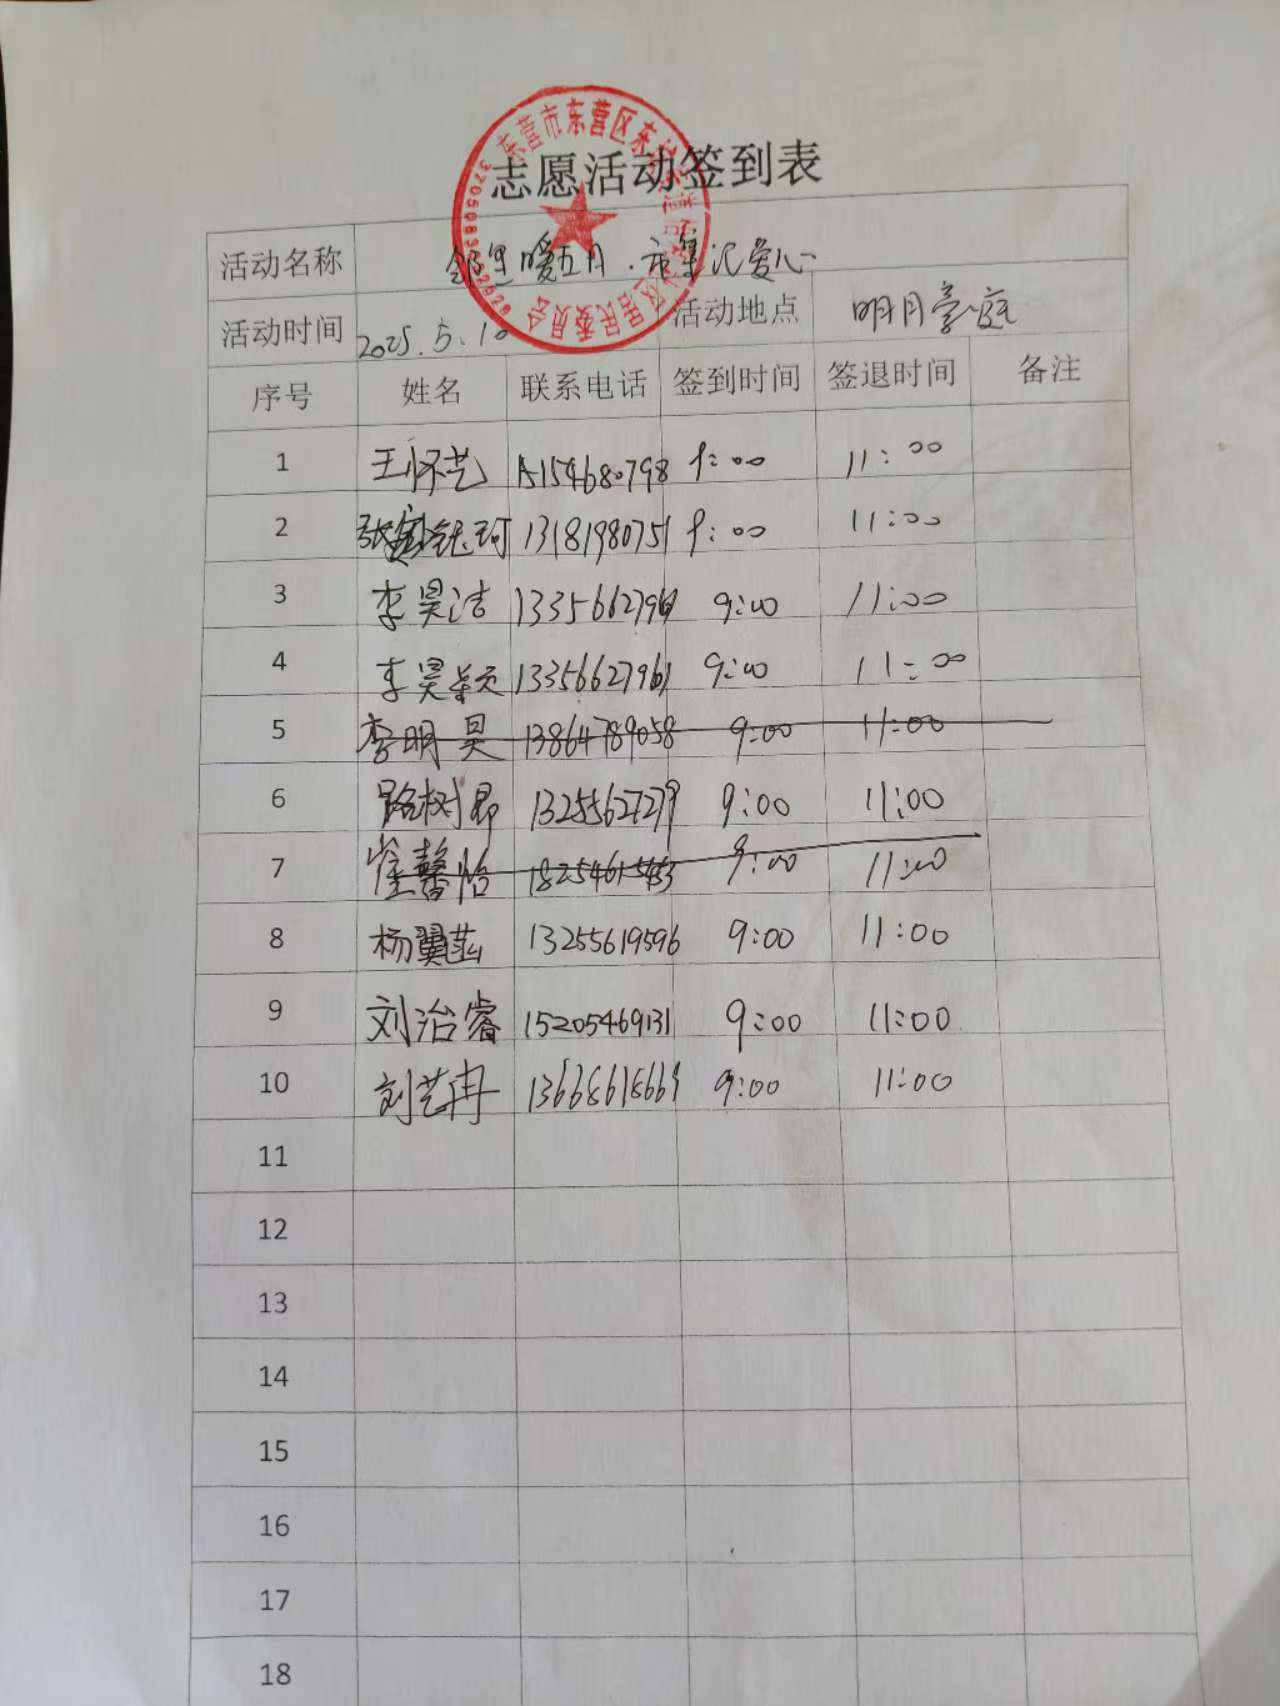 志愿活动签到表
东营市东营区东 居民委员会
活动名称 邻里暖五月·市集汇爱心
活动时间 2025.5.10 活动地点 明月豪庭
序号 姓名 联系电话 签到时间 签退时间 备注
1 王怀艺 15154680798 9:00 11:00
2 张 钰珂 13181980751 9:00 11:00
3 李昊洁 9:00 11:00
4 李昊颖 13356627961 9:00 11:00
5 李明昊 13864789058 9:00 11:00
6 路树昂 13255627279 9:00 11:00
7 崔馨怡 9:00 11:00
8 杨翼菡 13255619596 9:00 11:00
9 刘治睿 15205469131 9:00 11:00
10 刘艺冉 13668618669 9:00 11:00
11
12
13
14
15
16
17
18